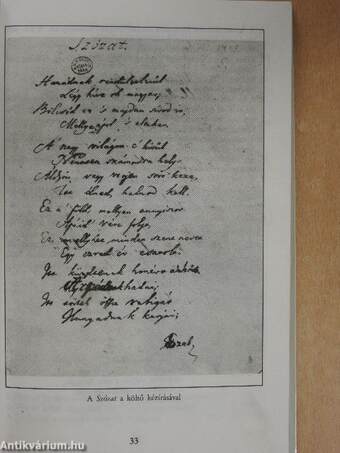 Szózat.
Hazádnak rendületlenűl
Légy híve oh magyar;
Bölcsőd ez 's majdan sírod is,
Melly ápol 's eltakar.
A' nagy világon e' kivűl
Nincsen számodra hely;
Áldjon, vagy verjen sors keze,
Itt élned, halnod kell.
Ez a' föld, mellyen annyiszor
Apáid' vére folyt;
Ez, mellyhez minden szent nevet
Egy ezred év csatolt.
Itt küzdtenek honért a hős
Árpádnak hadai;
Itt törtek össze rabigát
Hunyadnak karjai;
A Szózat a költő kézírásával
33
Antikvárium.hu